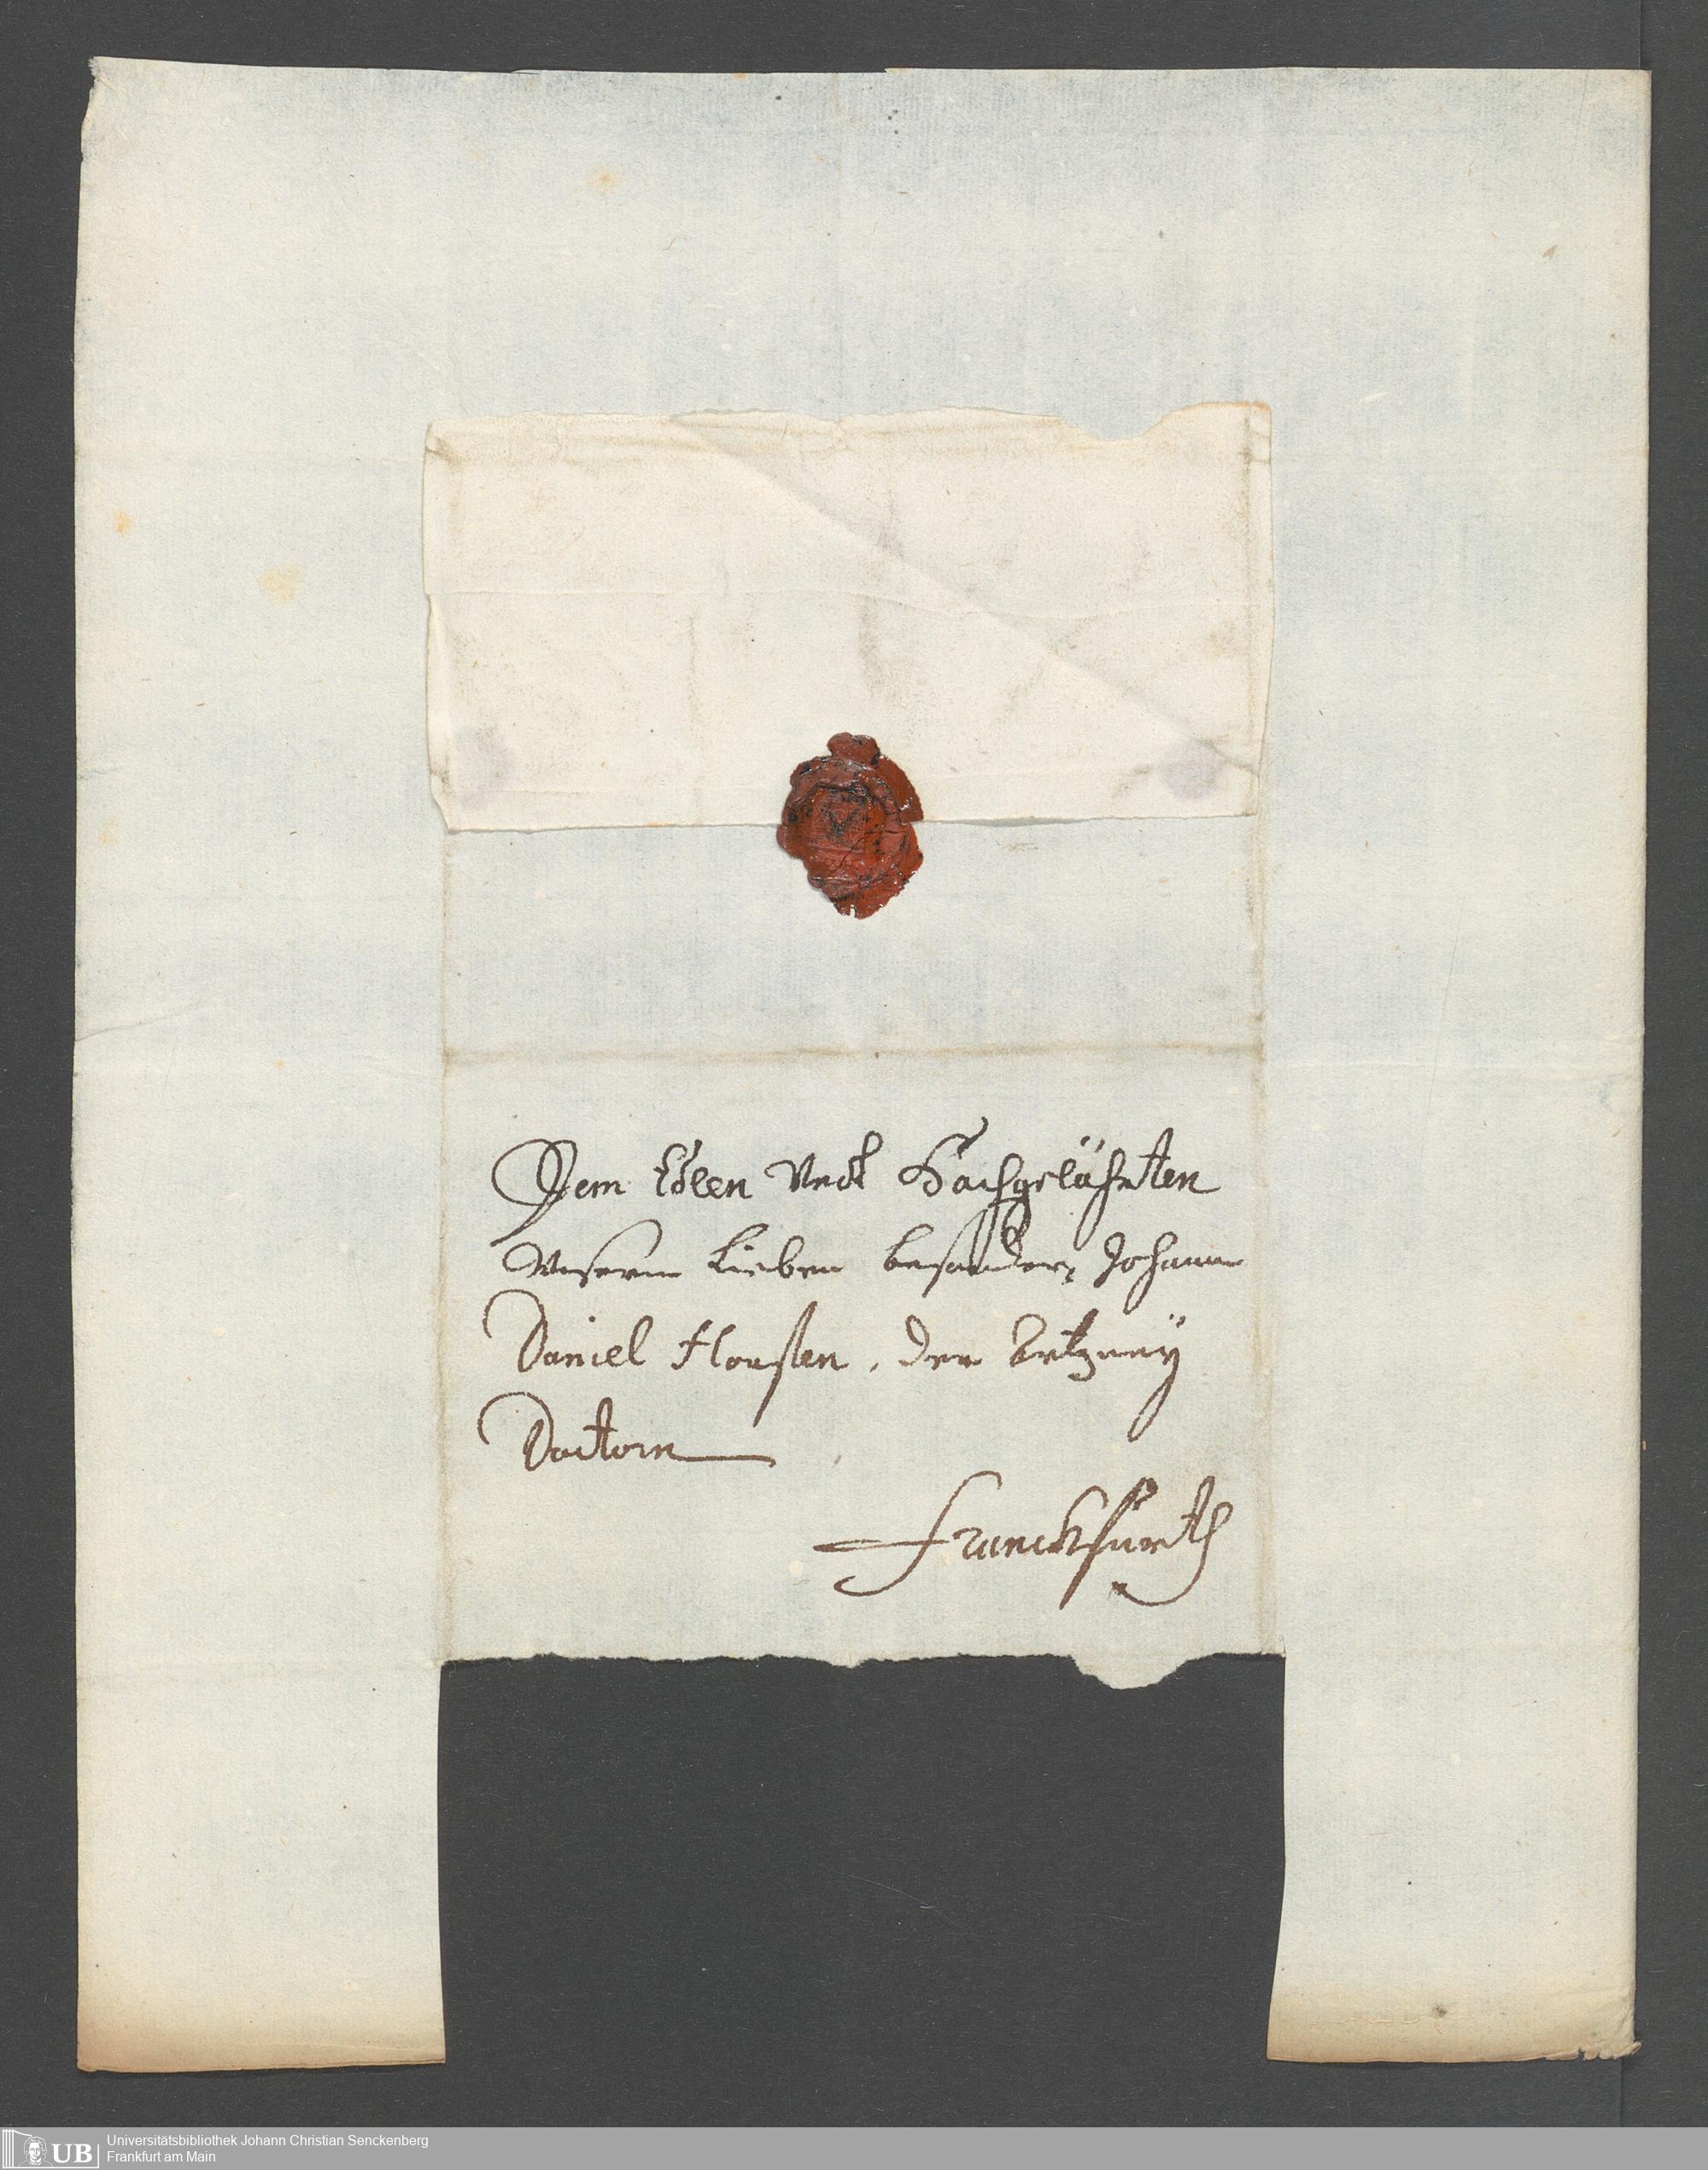 Dem Edlen Vndt Hochgelährten
Vnserm Lieben besonder, Johann
Daniel Horsten, der Artzney
Doctorn
Franckfurth
UB
Universitätsbibliothek Johann Christian Senckenberg
Frankfurt am Main